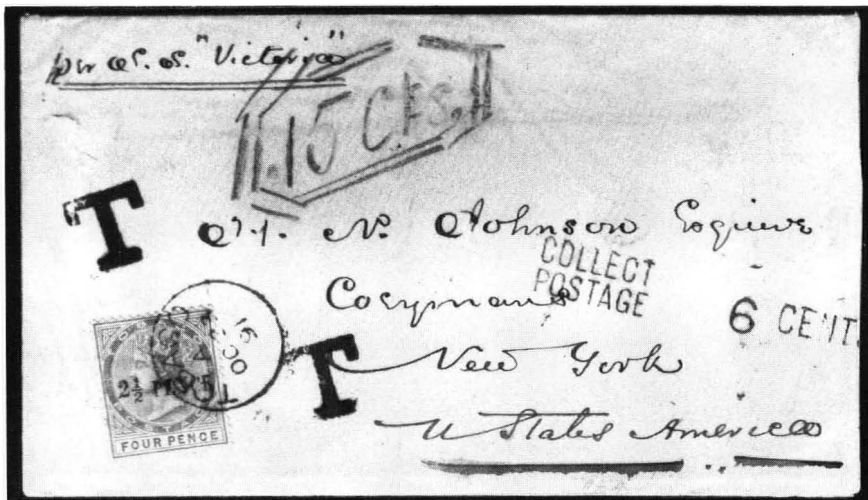 per S.S. "Victoria"
15 Cts.
T
N. Johnson Esquire
COLLECT
POSTAGE
6 CENT
T
New York
U States America
16
00
2½
FOUR PENCE